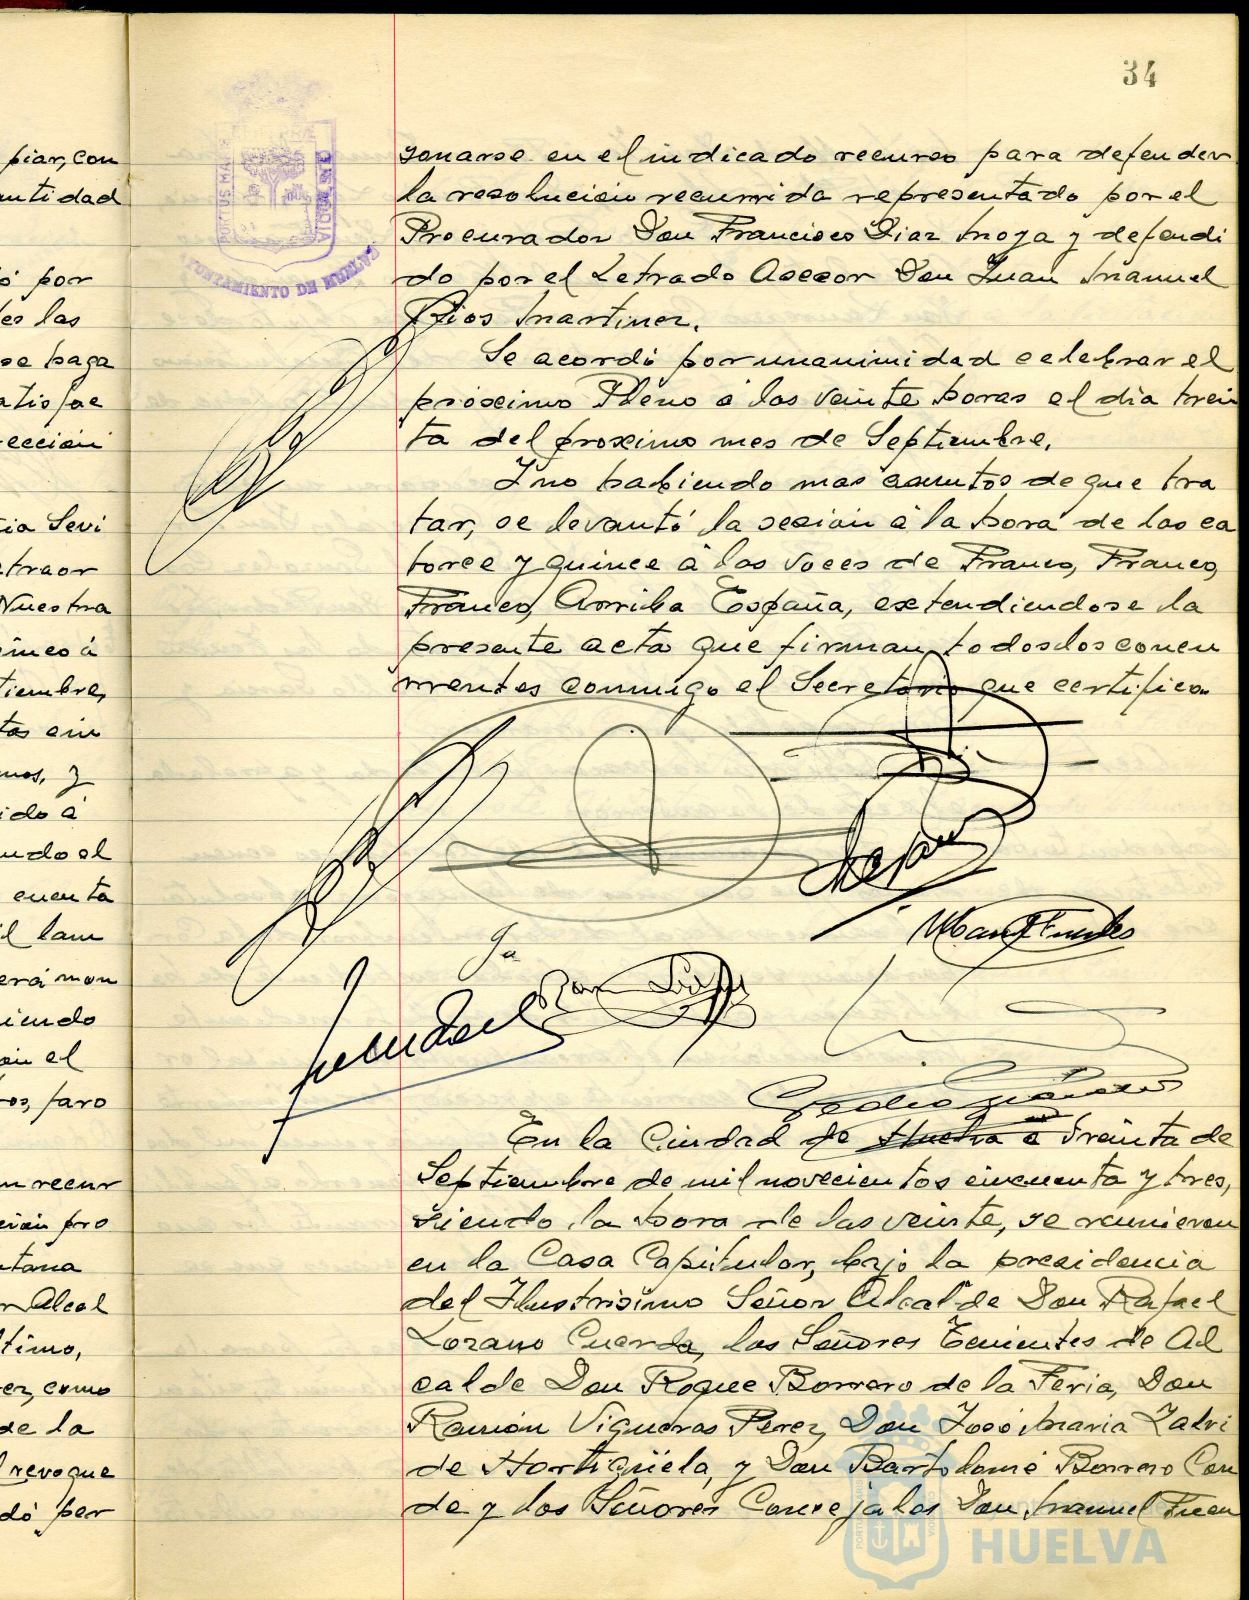 34
piar, con
antidad
ó por
es las
se haga
atisfac
ección
cia Sevi
traor
Nuestra
tiembre,
tas en
mos, y
ido á
ando el
cuenta
erá mon
iendo
en el
ros, faro
n recur
ción pro
ntana
r Alcal
ltimo,
ez, como
de la
l revoque
dó per
PORTUS MARIS
AYUNTAMIENTO DE HUELVA
sonarse en el indicado recurso para defender
la resolucion recurrida representado por el
Procurador Don Francisco Diaz Moya y defendi
do por el Letrado Asesor Don Juan Manuel
Rios Martinez.
Se acordó por unanimidad celebrar el
próximo Pleno á las veinte horas el dia trein
ta del proximo mes de Septiembre.
Y no habiendo mas asuntos de que tra
tar, se levantó la sesión á la hora de las ca
torce y quince á las voces de Franco, Franco,
Franco, Arriba España, extendiendose la
presente acta que firman todos los concu
rrentes conmigo el Secretario que certifico.
En la Ciudad de Huelva a treinta de
Septiembre de mil novecientos cincuenta y tres,
siendo la hora de las veinte, se reunieron
en la Casa Capitular, bajo la presidencia
del Ilustrisimo Señor Alcalde Don Rafael
Lozano Cuerda, los Señores Tenientes de Al
calde Don Roque Borrero de la Feria, Don
Ramón Vigueras Perez, Don José Maria Zalvi
de Hortigüela, y Don Bartolomé Borrero Con
de y los Señores Concejales Don Manuel Fuen
HUELVA